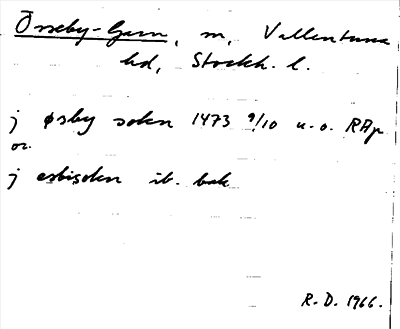 Össeby-Garn, sn, Vallentuna
hd, Stockh. l.
j øsby sokn 1473 9/10 u.o. RAp
or.
j esbisokn ib. bak
R. D. 1966.